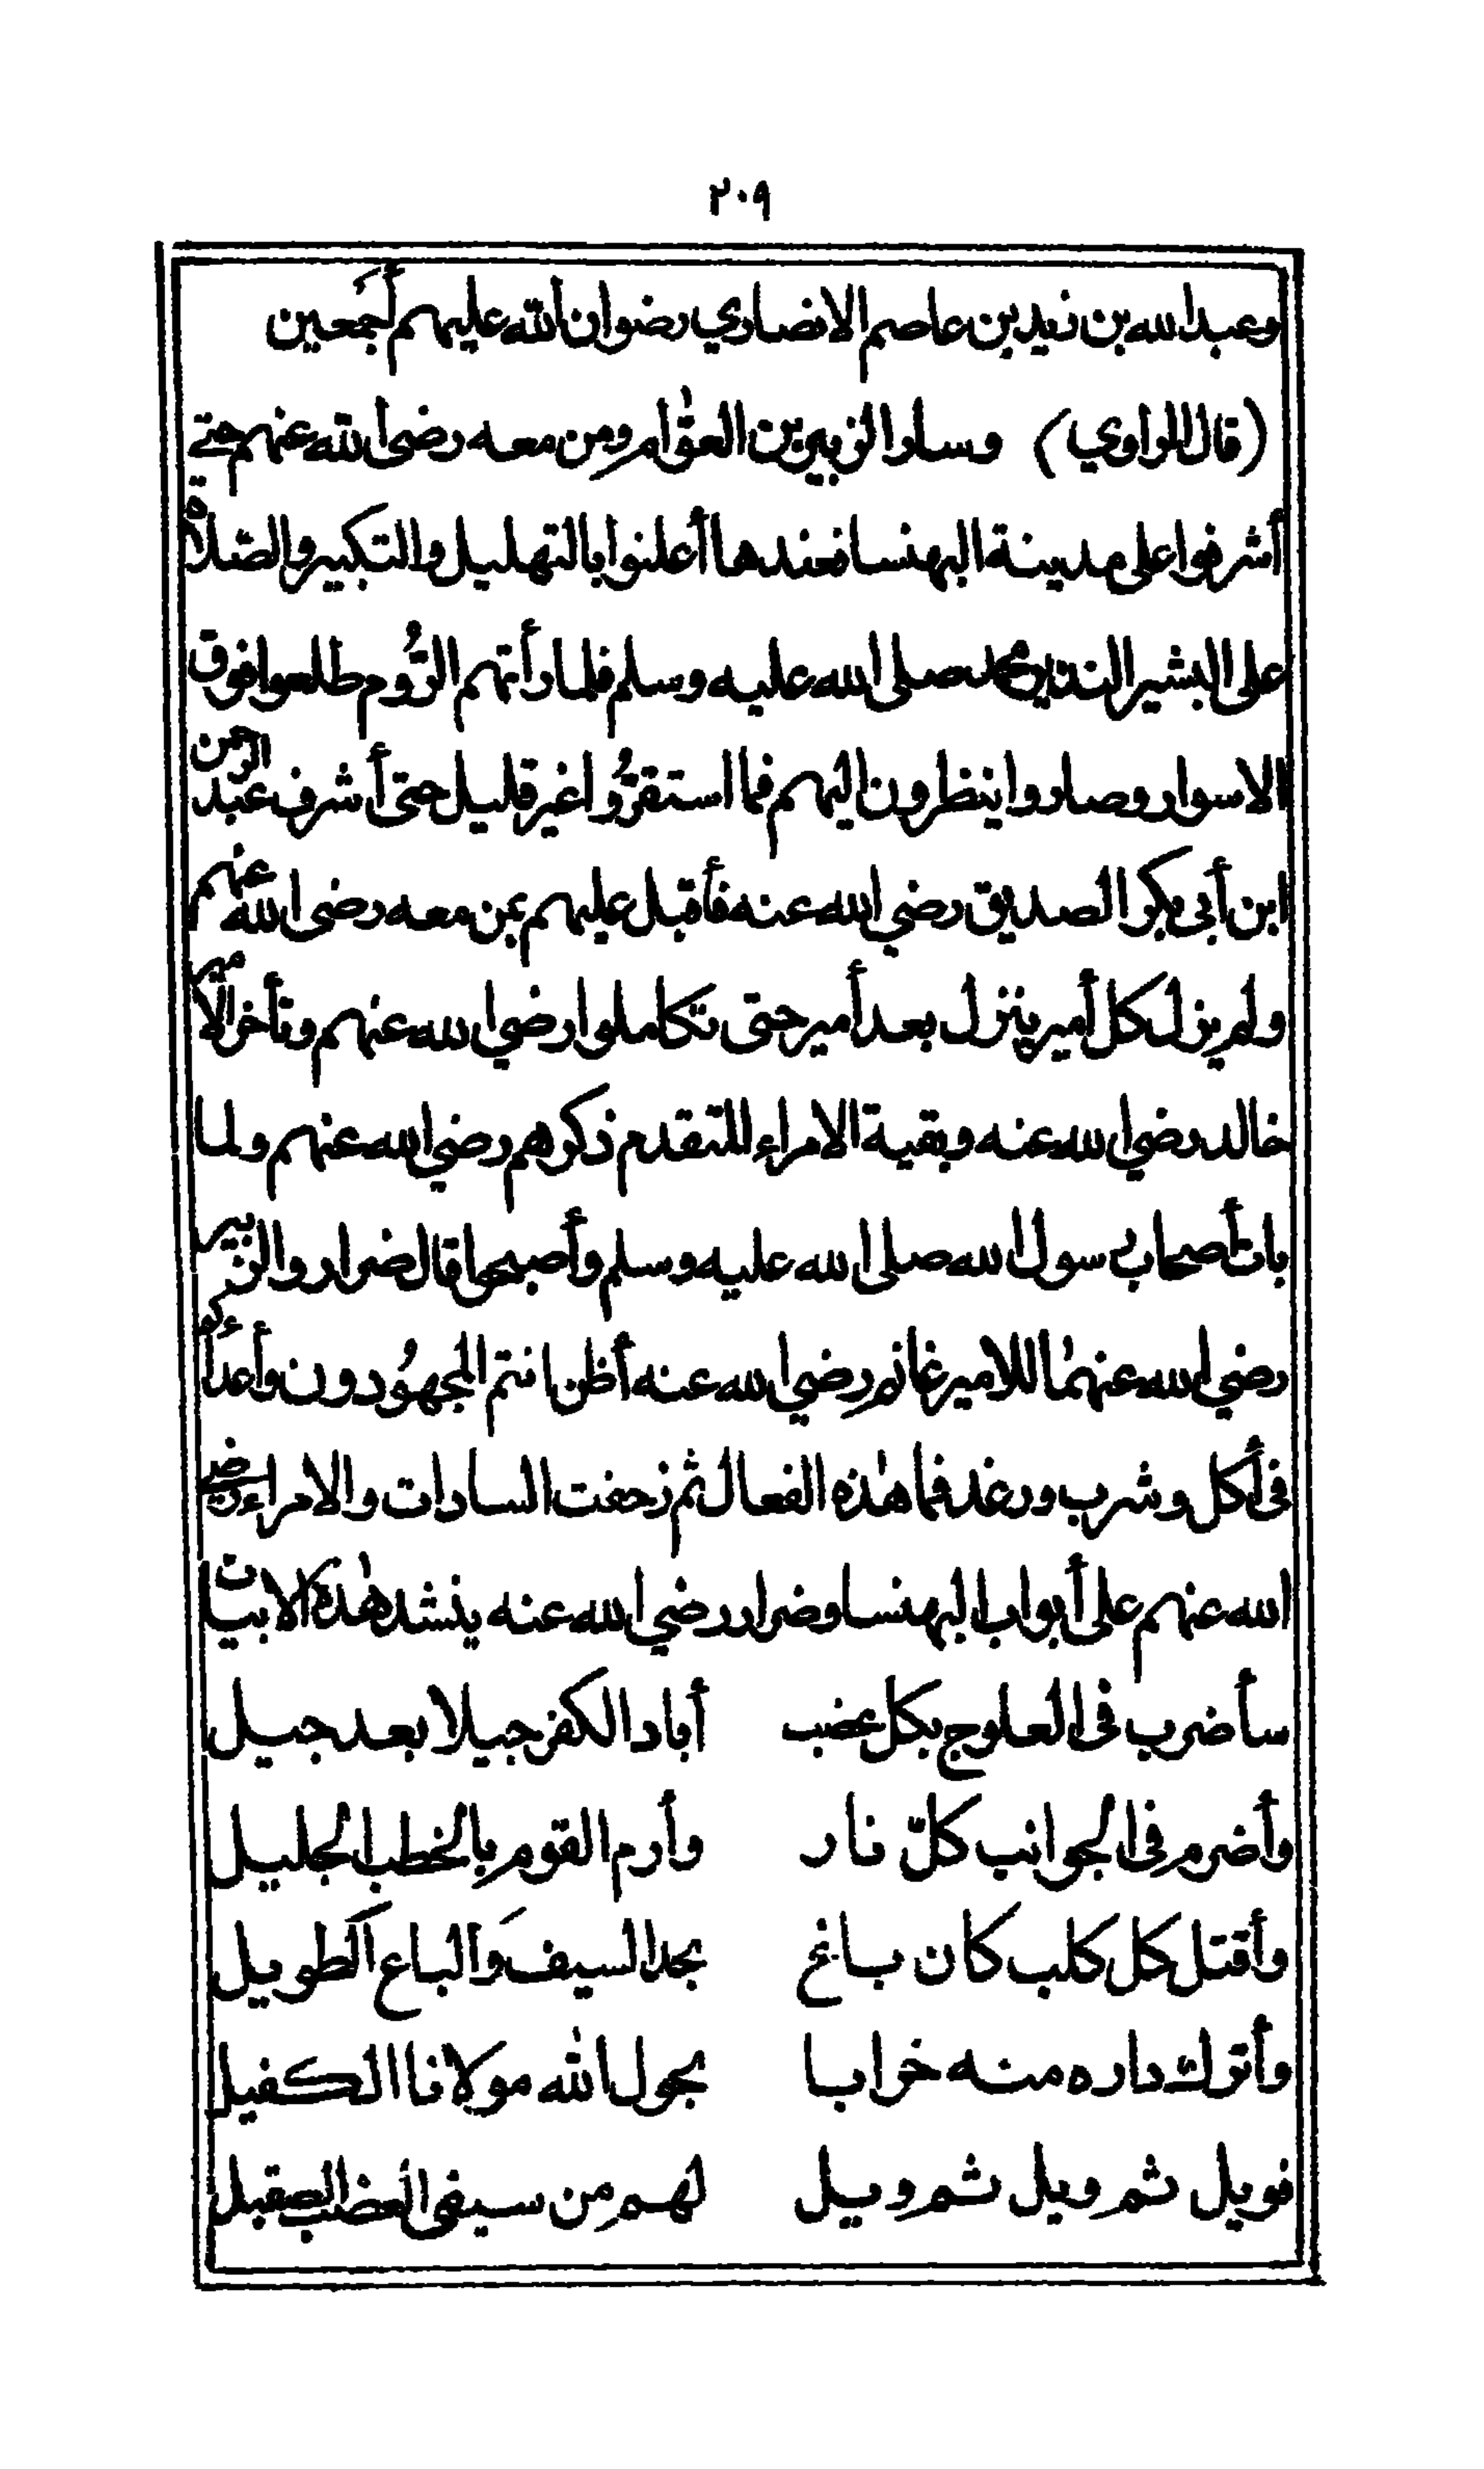 ٢٠٩
وعبد الله بن زيد بن عاصم الانصاري رضوان الله عليهم أجمَعين
(قال الراوي) وسار الزبير بن العوام ومن معه رضي الله عنهم حتى
أشرفوا على مدينة البهنسا فعندها أعلنوا بالتهليل والتكبير والصلاة
على البشير النذير محمد صلى الله عليه وسلم فلما رأتهم الرُّوم طلعوا فوق
الاسوار وصاروا ينظرون اليهم فما استقرُّوا غير قليل حتى أشرف عبد الرحمن
ابن أبى بكر الصديق رضي الله عنه فأقبل عليهم بمن معه رضى الله عنهم
ولم يزل كل أمير ينزل بعد أمير حتى تكاملوا رضي الله عنهم وتأخر الأمير
خالد رضي الله عنه وبقية الامراء المتقدم ذكرهم رضي الله عنهم ولما
بات أصحاب رسول الله صلى الله عليه وسلم وأصبحوا قال ضرار والزبير
رضي الله عنهما للامير غانم رضي الله عنه أظن انتم المجهُودون وأعداؤكم
فى أكل وشرب ورغد فما هذه الفعال ثم زحفت السادات والامراء رضي
الله عنهم على أبواب البهنسا وضرار رضي الله عنه ينشد هذه الابيات
سأضرب فى العلوج بكل عضب أباد الكفر جيلا بعد جيل
وأضرم فى الجوانب كلّ نار وأرم القوم بالخطب الجليل
وأقتل كل كلب كان باغ بحد السيف وَالباع الَطويل
وأترك داره منه خرابا بحول الله مولانا الكفيل
فويل ثم ويل ثم ويل لهم من سيفى العضب الصقيل